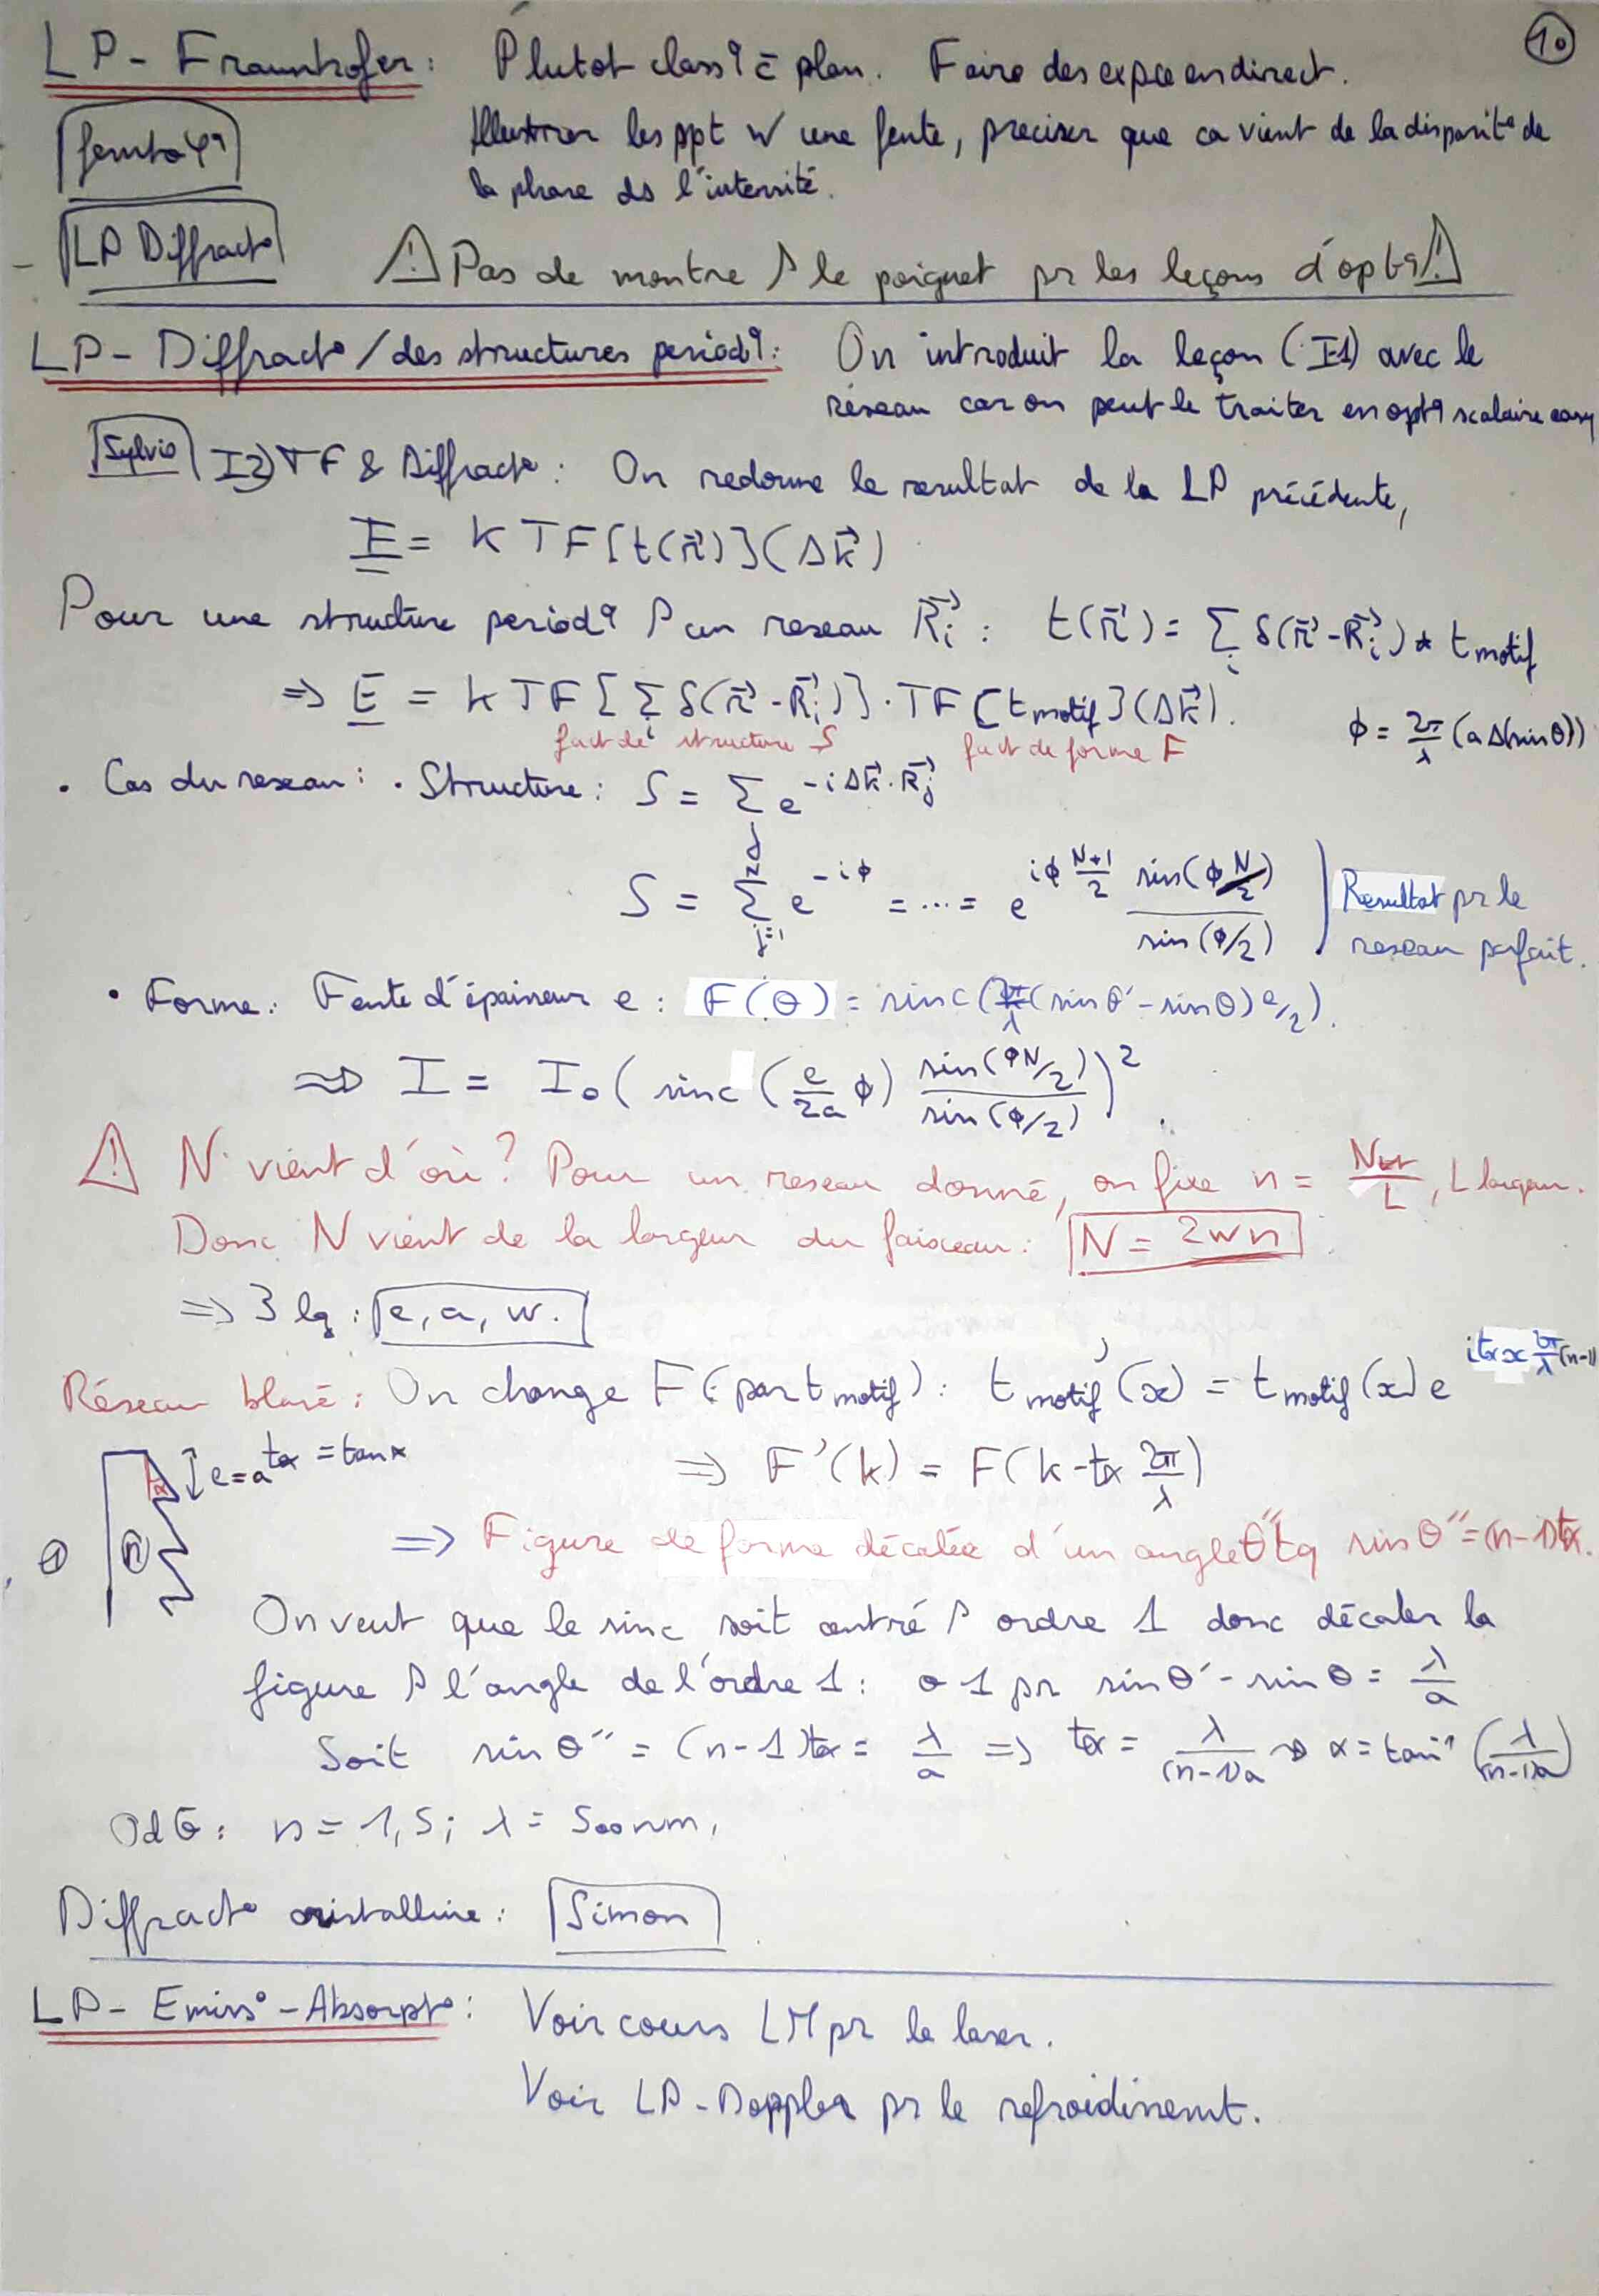 10
LP - Fraunhofer : Plutot class9 c̄ plan. Faire des expce en direct.
femto φ9
Illustrer les ppt w une fente, preciser que ca vient de la disparit° de
la phase ds l'intensité.
LP Diffract°
⚠ Pas de montre s le poignet pr les leçons d'opt9 ⚠
LP - Diffract° / des structures period9 : On introduit la leçon (I-1) avec le
réseau car on peut le traiter en opt9 scalaire easy
Sylvio
I2) TF & Diffract° : On redonne le resultat de la LP précédente,
E = K TF[t(r⃗)](Δk⃗)
Pour une structure period9 s un reseau R⃗i : t(r⃗) = Σi δ(r⃗-R⃗i) * t motif
=> E = K TF[Σi δ(r⃗-R⃗i)] · TF[t motif](Δk⃗).
fact de structure S fact de forme F
φ = 2π/λ (a Δ(sinθ))
• Cas du reseau : • Structure : S = Σ e^{-iΔk⃗·R⃗j}
S = Σ_{j=1}^{N} e^{-iφ} = ... = e^{iφ (N+1)/2} sin(φN/2) / sin(φ/2) | Resultat pr le
reseau parfait.
• Forme : Fente d'épaisseur e : F(θ) = sinc(2π/λ (sinθ' - sinθ) e/2).
=> I = I₀ (sinc(e/2a φ) sin(φN/2) / sin(φ/2))²
⚠ N vient d'où ? Pour un reseau donné, on fixe n = Ntr/L, L largeur.
Donc N vient de la largeur du faisceau : N = 2wn
=> 3 lg : e, a, w.
Réseau blasé : On change F (par t motif) : t' motif (x) = t motif (x) e^{i tα x 2π/λ (n-1)}
e = a tα = tan α
=> F'(k) = F(k - tα 2π/λ)
① n
=> Figure de forme décalée d'un angle θ'' tq sin θ'' = (n-1)tα.
On veut que le sinc soit centré s ordre 1 donc décaler la
figure s l'angle de l'ordre 1 : o 1 pr sinθ' - sinθ = λ/a
Soit sin θ'' = (n-1)tα = λ/a => tα = λ/(n-1)a → α = tan⁻¹ (λ/(n-1)a)
OdG : n = 1,5 ; λ = 500nm,
Diffract° cristalline : Simon
LP - Emiss° - Absorpt° : Voir cours LM pr le laser.
Voir LP - Doppler pr le refroidissemt.